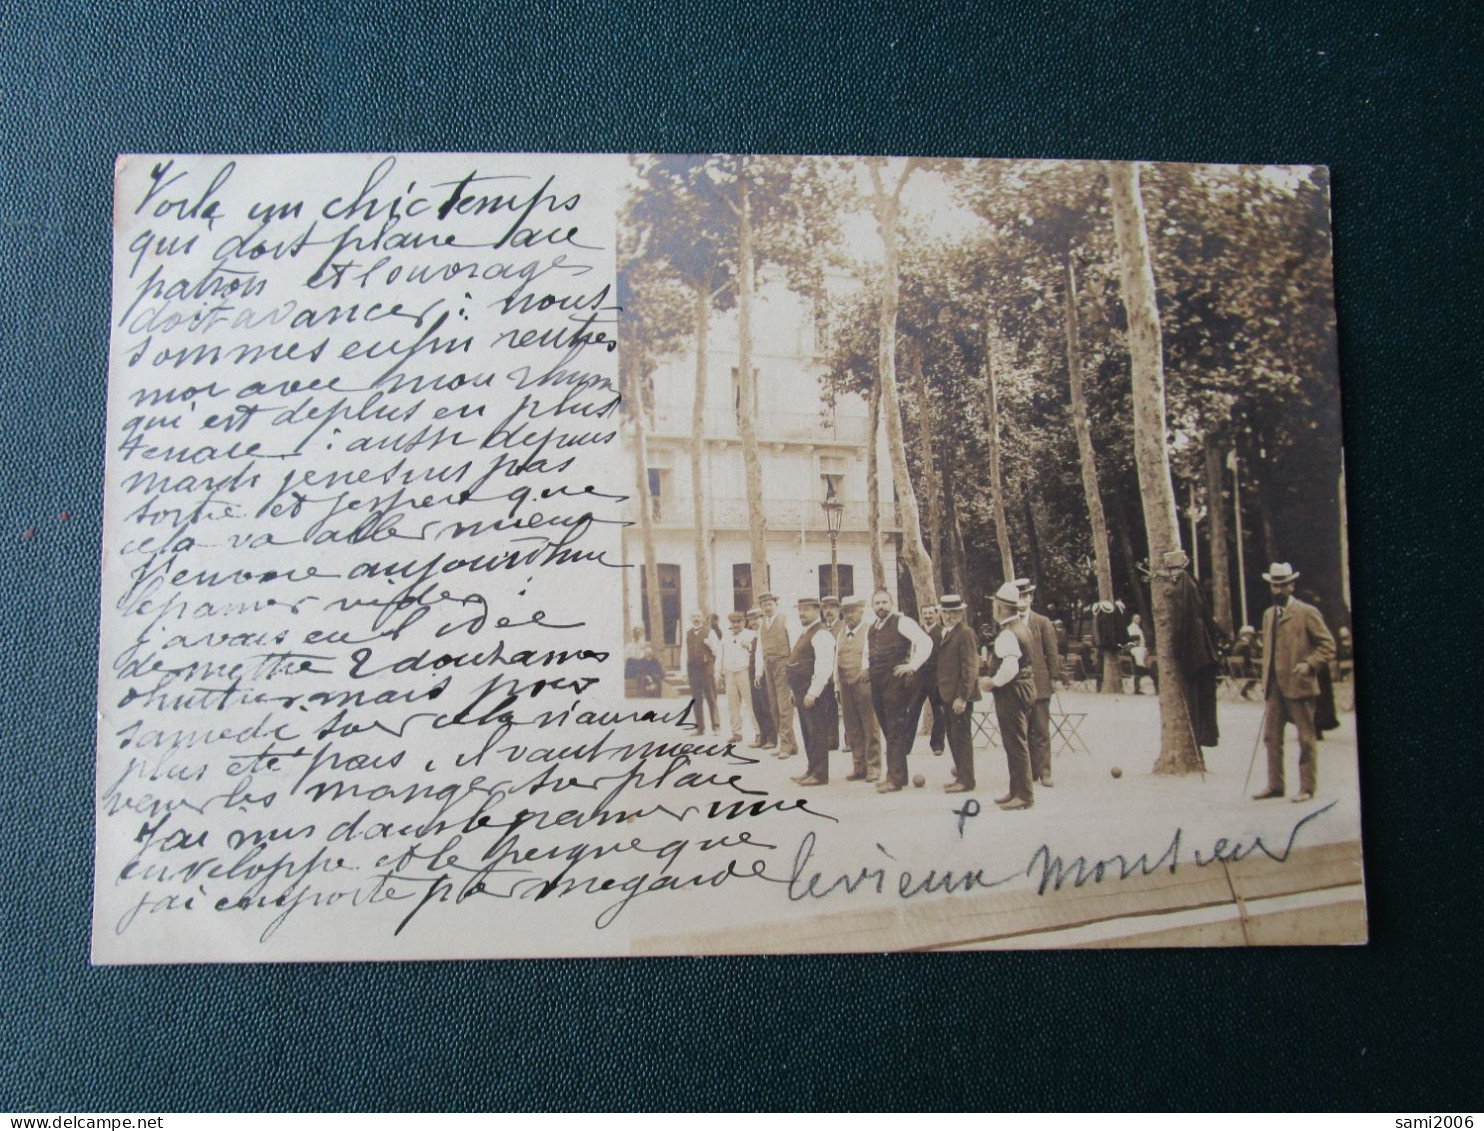 Voila un chic temps
qui doit plaire au
patron et l'ouvrage
doit avancer : nous
sommes enfin rentrés
moi avec mon rhum
qui est de plus en plus
tenace : aussi depuis
mardi je ne suis pas
sortie et j'espère que
cela va aller mieux
J'envoie aujourd'hui
le panier vide :
j'avais eu l'idée
de mettre 2 douzaines
d'huitres mais pour
samedi soir cela n'aurait
plus été frais, il vaut mieux
venir les manger sur place
J'ai mis dans le panier une
enveloppe et le peigne que
j'ai emporté par megarde
le vieux Monsieur
sami2006